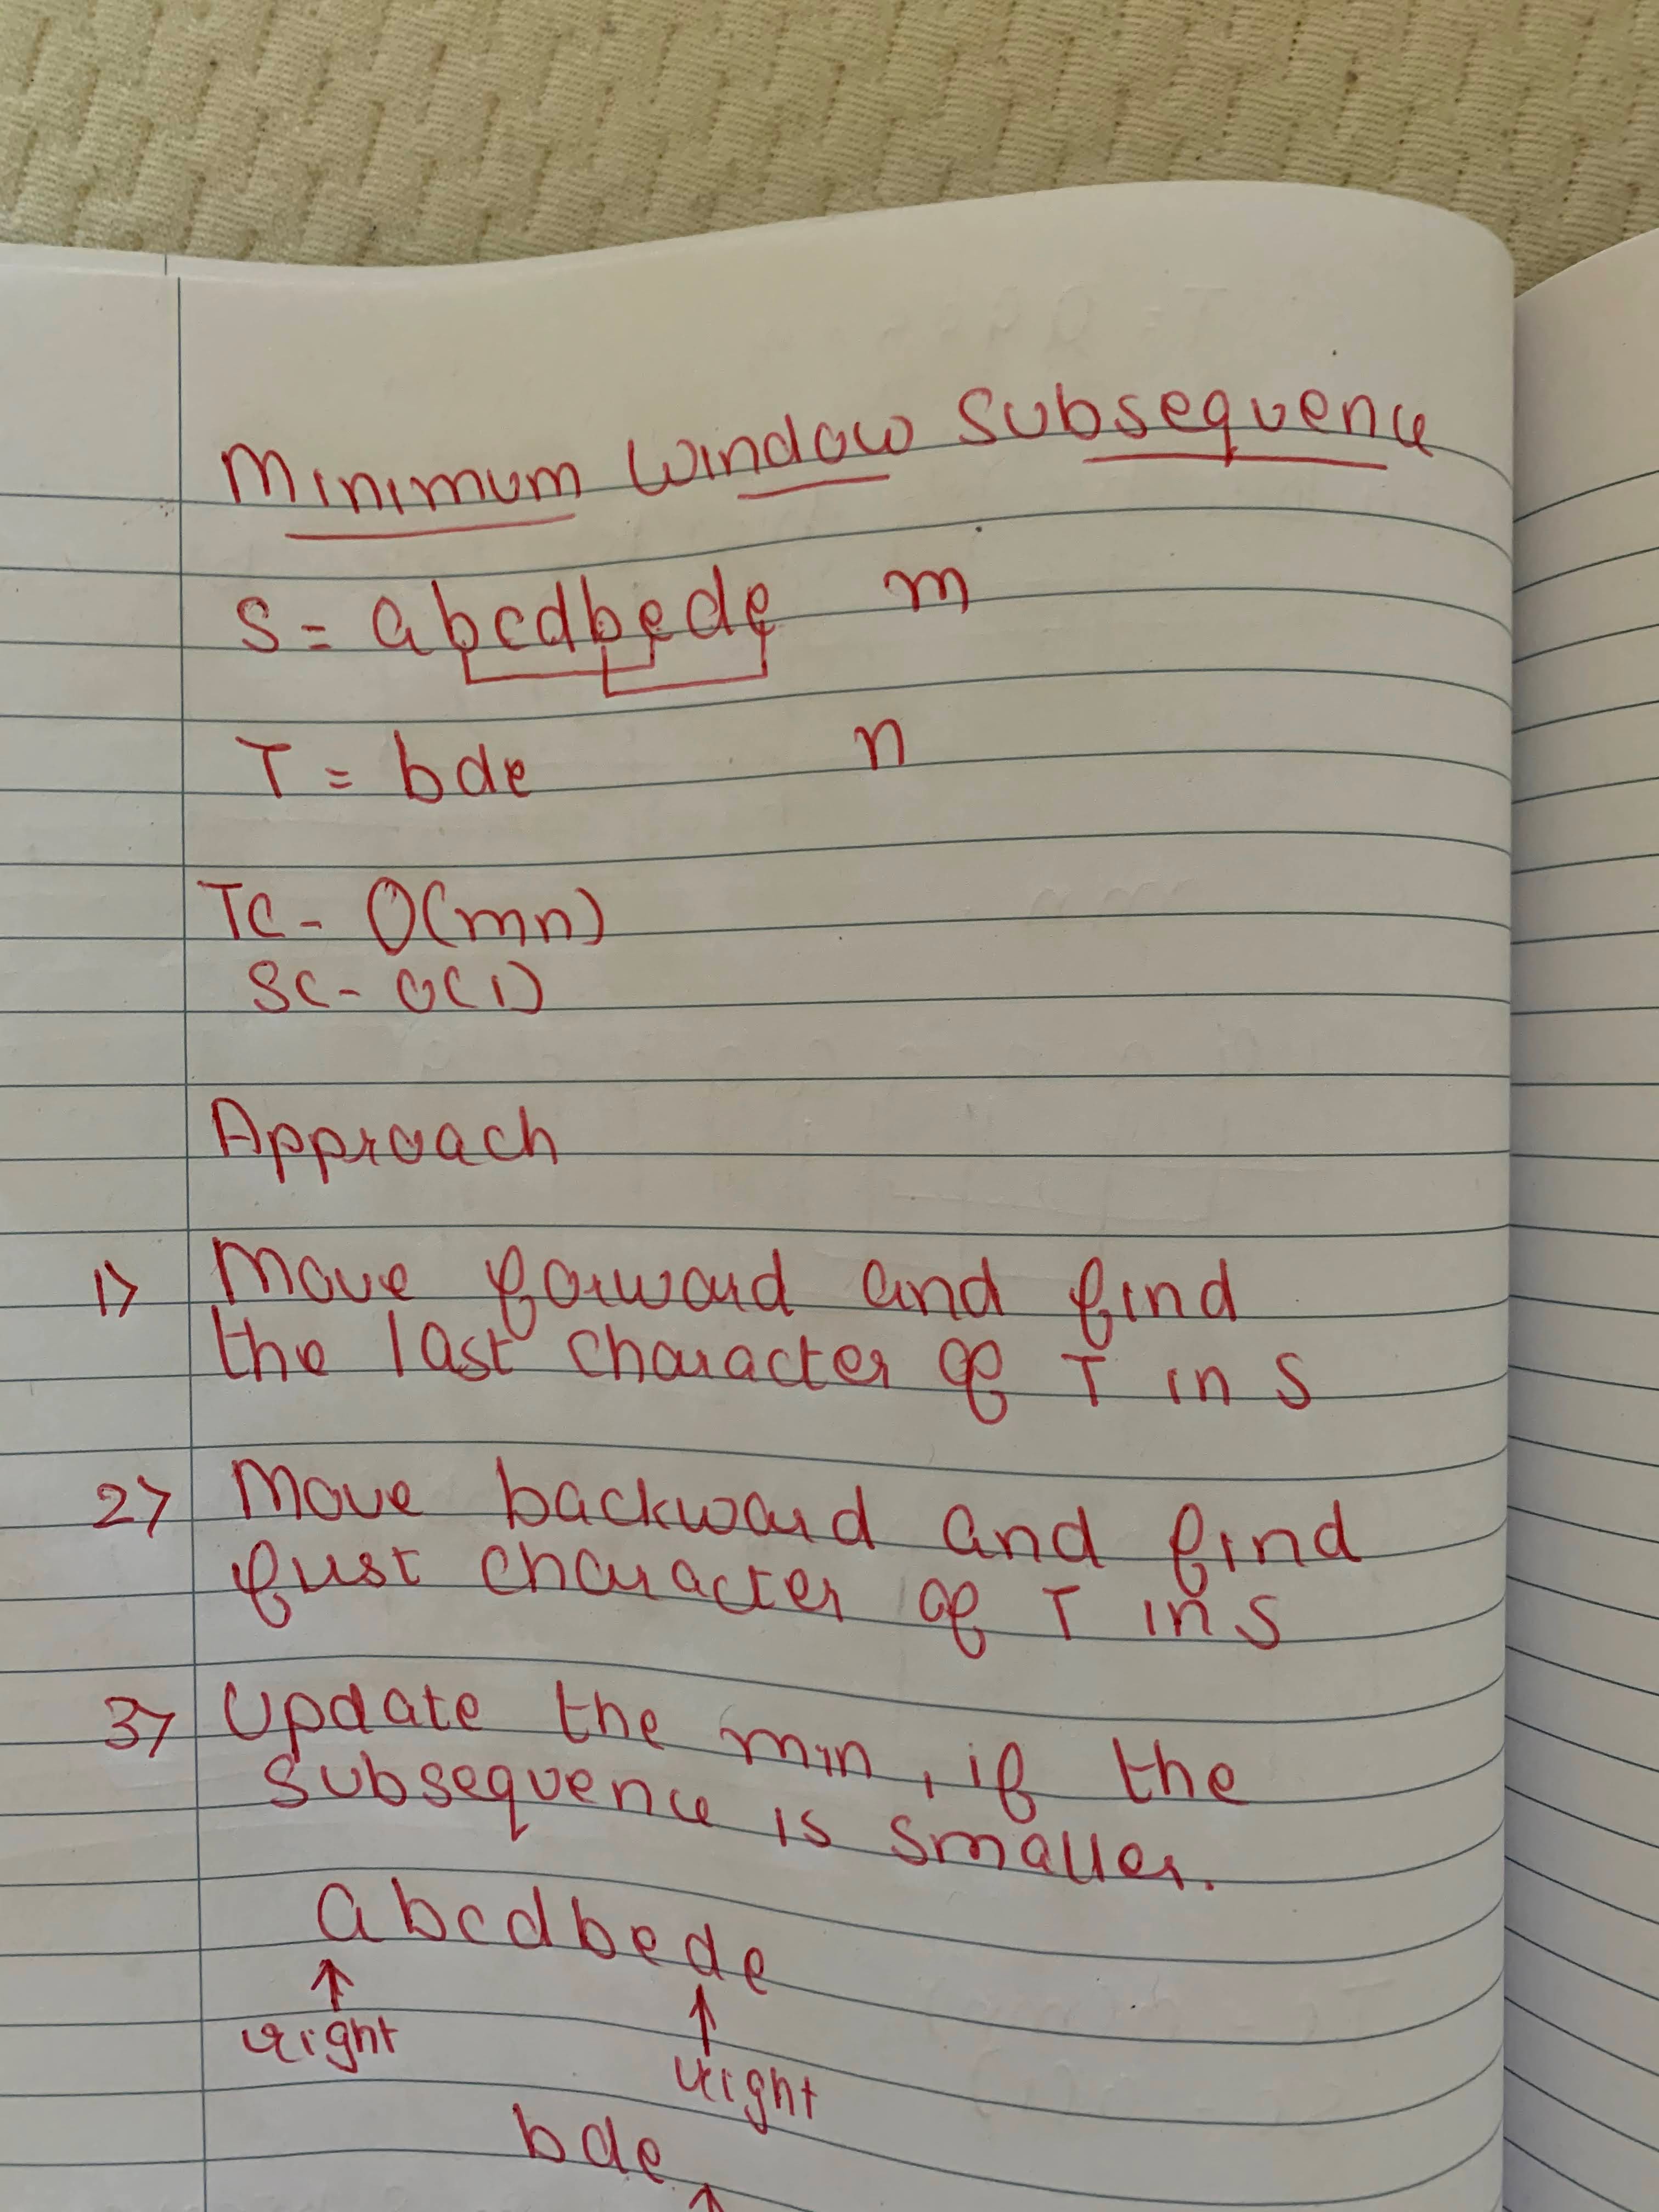 Minimum Window Subsequence
S = abcdbede m
T = bde n
TC - O(mn)
SC - O(1)
Approach
1) Move forward and find
the last character of T in S
2) Move backward and find
first character of T in S
3) Update the min, if the
subsequence is smaller.
abcdbede
↑ ↑
right right
bde
↑